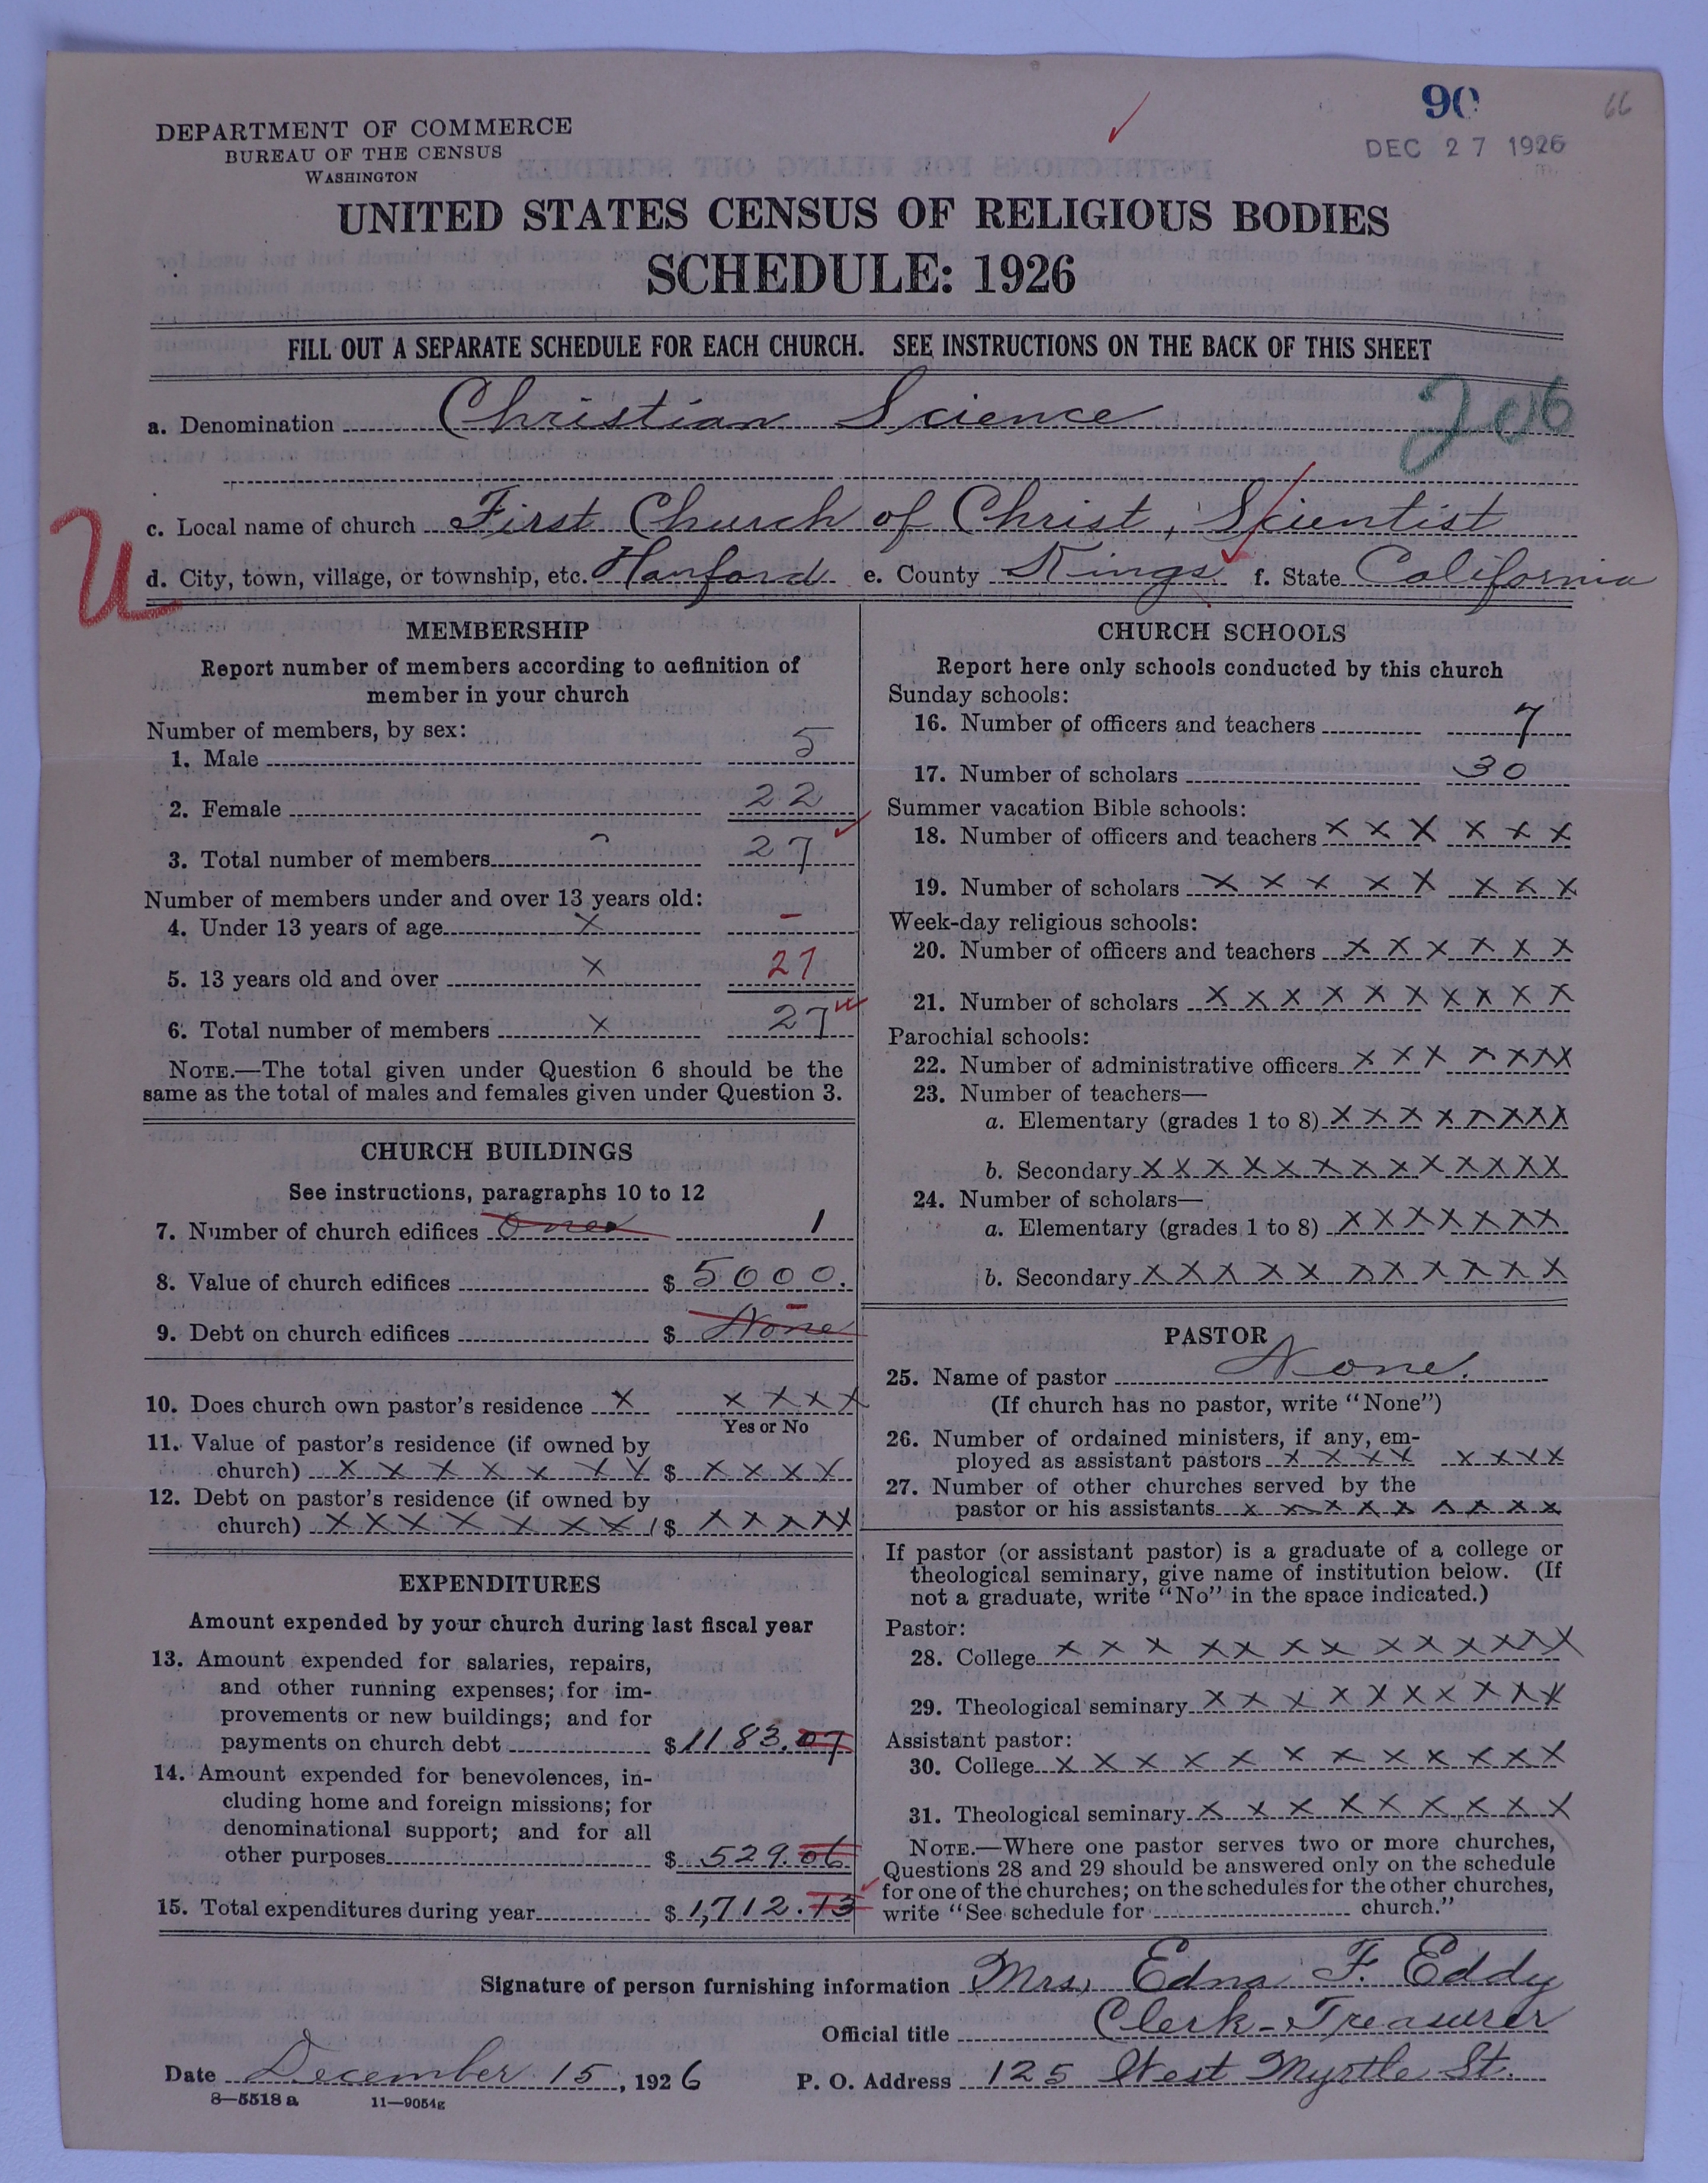 90
66
DEC 27 1926
DEPARTMENT OF COMMERCE
BUREAU OF THE CENSUS
WASHINGTON
UNITED STATES CENSUS OF RELIGIOUS BODIES
SCHEDULE: 1926
FILL OUT A SEPARATE SCHEDULE FOR EACH CHURCH. SEE INSTRUCTIONS ON THE BACK OF THIS SHEET
a. Denomination Christian Science 206
c. Local name of church First Church of Christ, Scientist
U
d. City, town, village, or township, etc. Hanford e. County Kings f. State California
MEMBERSHIP
Report number of members according to definition of
member in your church
Number of members, by sex:
1. Male 5
2. Female 22
3. Total number of members 27
Number of members under and over 13 years old:
4. Under 13 years of age X –
5. 13 years old and over X 27
6. Total number of members X 27
NOTE.—The total given under Question 6 should be the
same as the total of males and females given under Question 3.
CHURCH BUILDINGS
See instructions, paragraphs 10 to 12
7. Number of church edifices 1
8. Value of church edifices $ 5000.
9. Debt on church edifices $ None
10. Does church own pastor's residence X X X X X
Yes or No
11. Value of pastor's residence (if owned by
church) X X X X X X X $ X X X X X
12. Debt on pastor's residence (if owned by
church) X X X X X X X $ X X X X X
EXPENDITURES
Amount expended by your church during last fiscal year
13. Amount expended for salaries, repairs,
and other running expenses; for im-
provements or new buildings; and for
payments on church debt $ 1183.07
14. Amount expended for benevolences, in-
cluding home and foreign missions; for
denominational support; and for all
other purposes $ 529.06
15. Total expenditures during year $ 1,712.13
CHURCH SCHOOLS
Report here only schools conducted by this church
Sunday schools:
16. Number of officers and teachers 7
17. Number of scholars 30
Summer vacation Bible schools:
18. Number of officers and teachers X X X X X X
19. Number of scholars X X X X X X X X
Week-day religious schools:
20. Number of officers and teachers X X X X X X
21. Number of scholars X X X X X X X X X X
Parochial schools:
22. Number of administrative officers X X X X X X X
23. Number of teachers—
a. Elementary (grades 1 to 8) X X X X X X X X
b. Secondary X X X X X X X X X X X X X
24. Number of scholars—
a. Elementary (grades 1 to 8) X X X X X X X X
b. Secondary X X X X X X X X X X X X
PASTOR
25. Name of pastor None.
(If church has no pastor, write "None")
26. Number of ordained ministers, if any, em-
ployed as assistant pastors X X X X X X X X
27. Number of other churches served by the
pastor or his assistants X X X X X X X X X
If pastor (or assistant pastor) is a graduate of a college or
theological seminary, give name of institution below. (If
not a graduate, write "No" in the space indicated.)
Pastor:
28. College X X X X X X X X X X X X X X
29. Theological seminary X X X X X X X X X X X
Assistant pastor:
30. College X X X X X X X X X X X X
31. Theological seminary X X X X X X X X X
NOTE.—Where one pastor serves two or more churches,
Questions 28 and 29 should be answered only on the schedule
for one of the churches; on the schedules for the other churches,
write "See schedule for church."
Signature of person furnishing information Mrs. Edna F. Eddy
Official title Clerk-Treasurer
Date December 15, 1926 P. O. Address 125 West Myrtle St.
8—5518 a 11—9054g